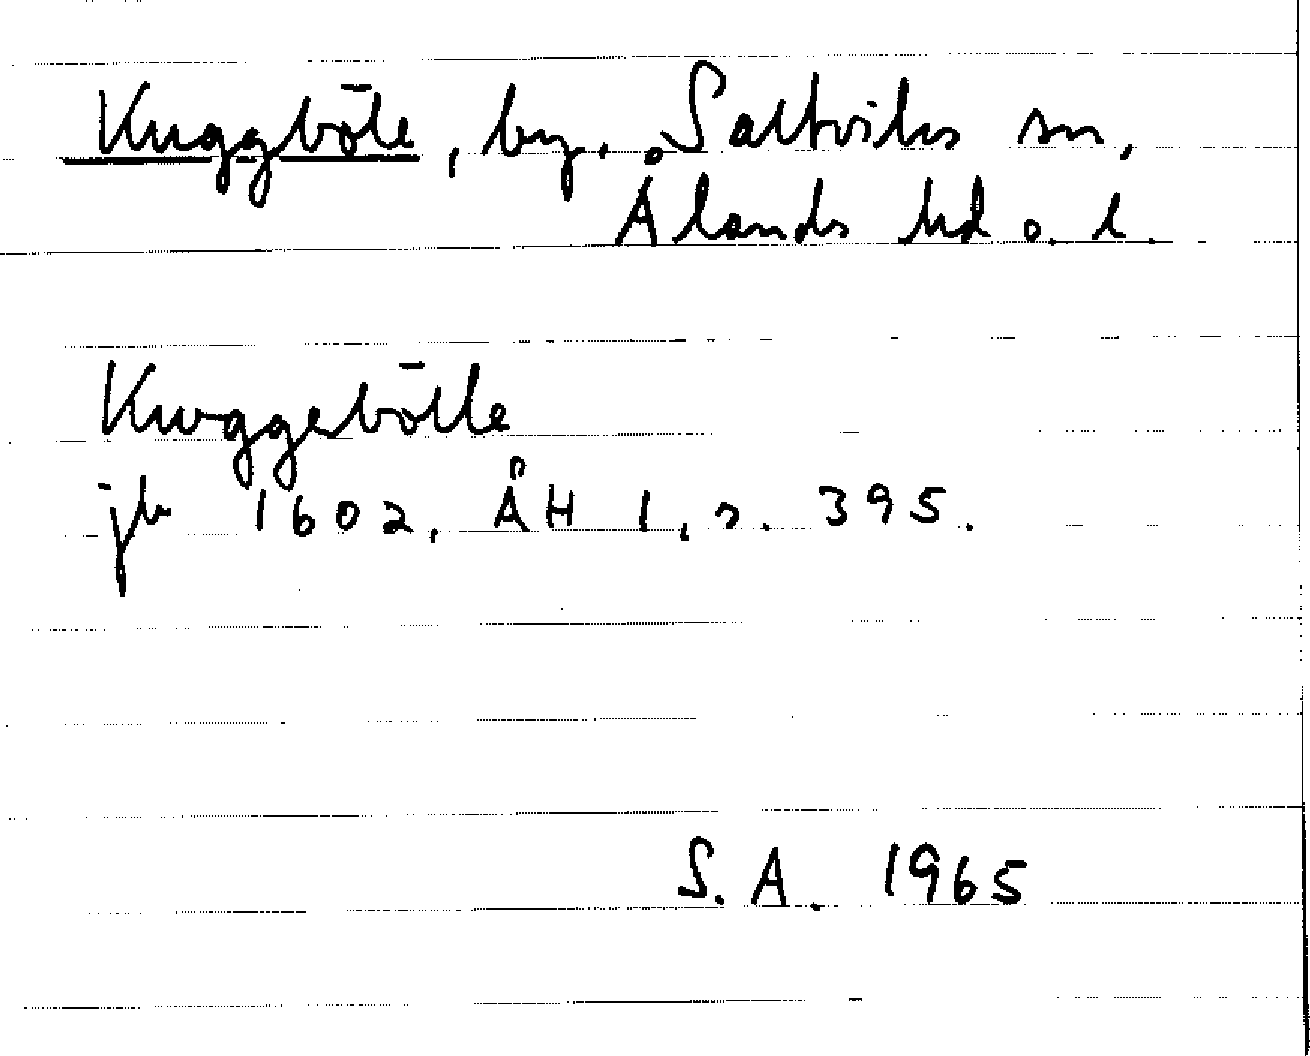 Kuggböle, by. Saltviks sn,
Ålands hd o. l.
Kuggebölle
jb 1602, ÅH 1, s. 395.
S. A. 1965